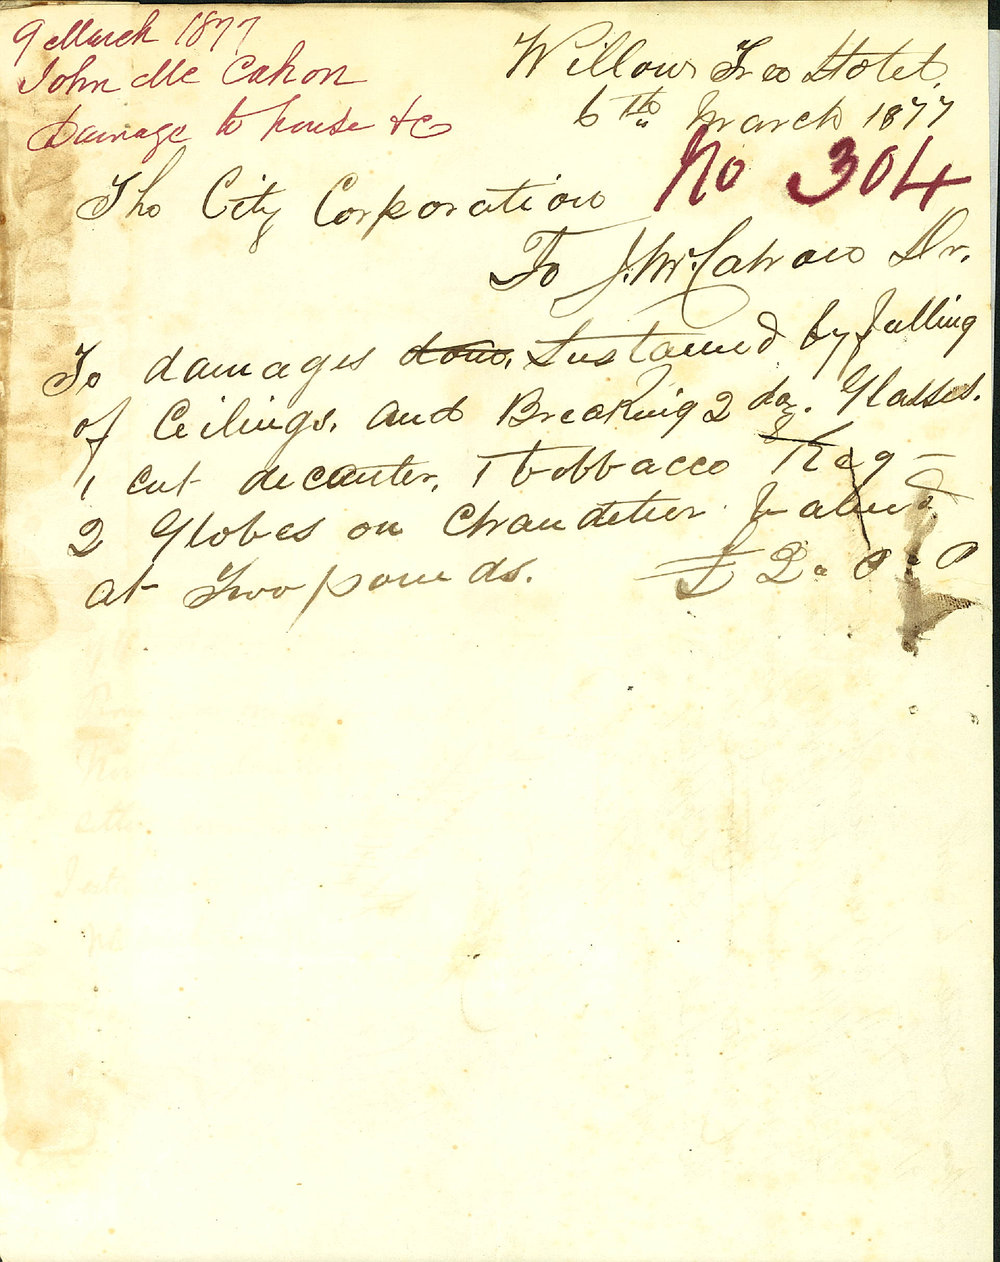 9 March 1877
John Mc Cahon
Damage to house &c
Willow Tree Hotel,
6th March 1877
No 304
The City Corporation
To J. McCahon Dr.
To damages done, Sustained by falling
of Ceilings, and Breaking 2 doz. Glasses.
1 cut decanter, 1 tobbacco Keg -
2 Globes on Chandelier Valued
at Two pounds. £2.0.0